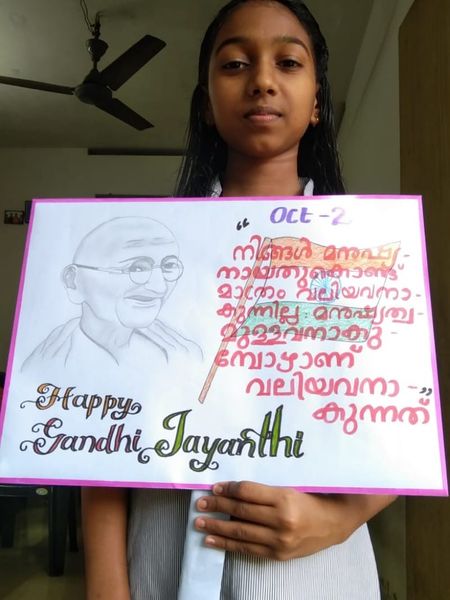 OCT - 2
“ നിങ്ങൾ മനുഷ്യ -
നായതുകൊണ്ട്
മാത്രം വലിയവനാ -
കുന്നില്ല മനുഷ്യത്വ -
മുള്ളവനാകു -
മ്പോഴാണ്
വലിയവനാ - ”
കുന്നത്
Happy
Gandhi Jayanthi